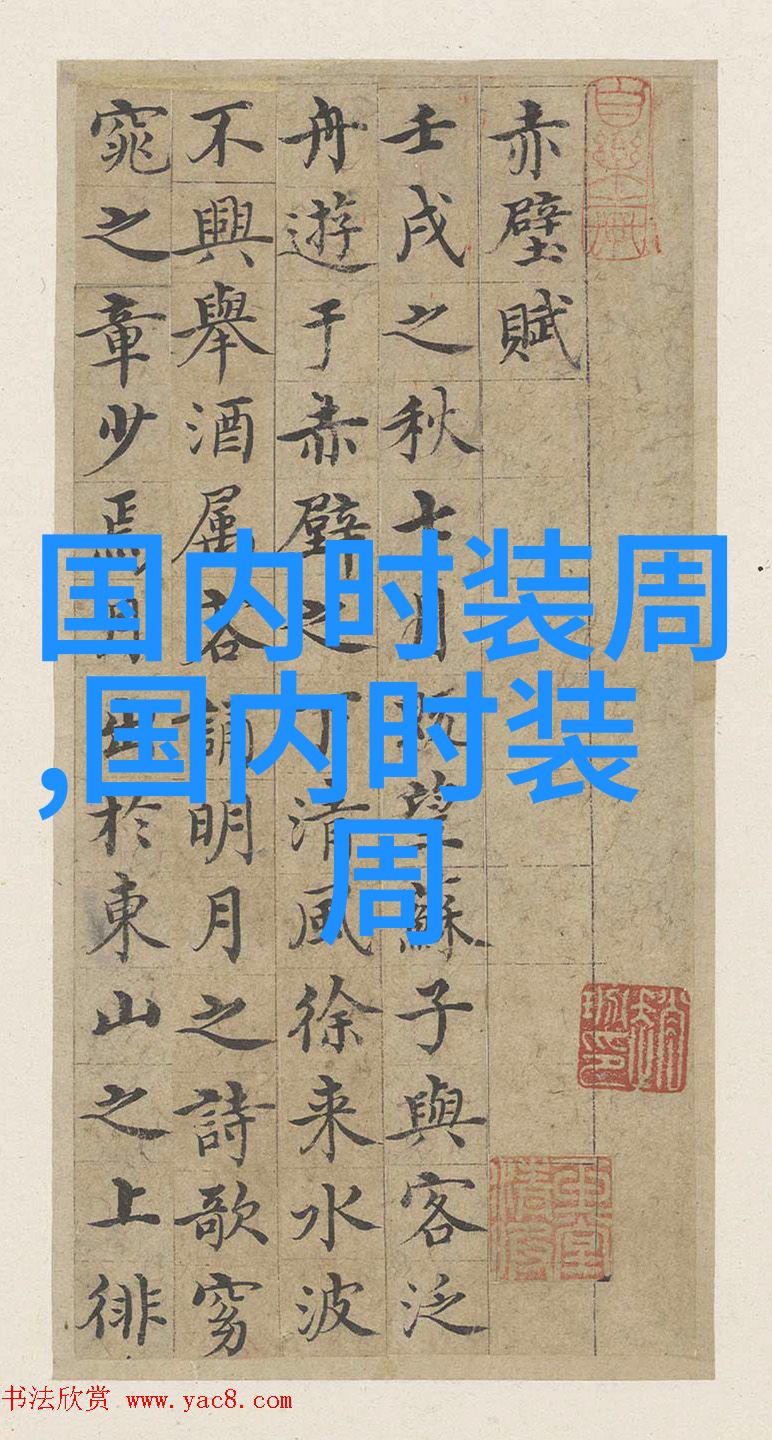 赤壁賦
壬戌之秋七月既望蘇子與客泛
舟遊于赤壁之下清風徐来水波
不興舉酒属客誦明月之詩歌窈
窕之章少焉月出於東山之上徘
国内时装周
,国内时装
周
书法欣赏 www.yac8.com